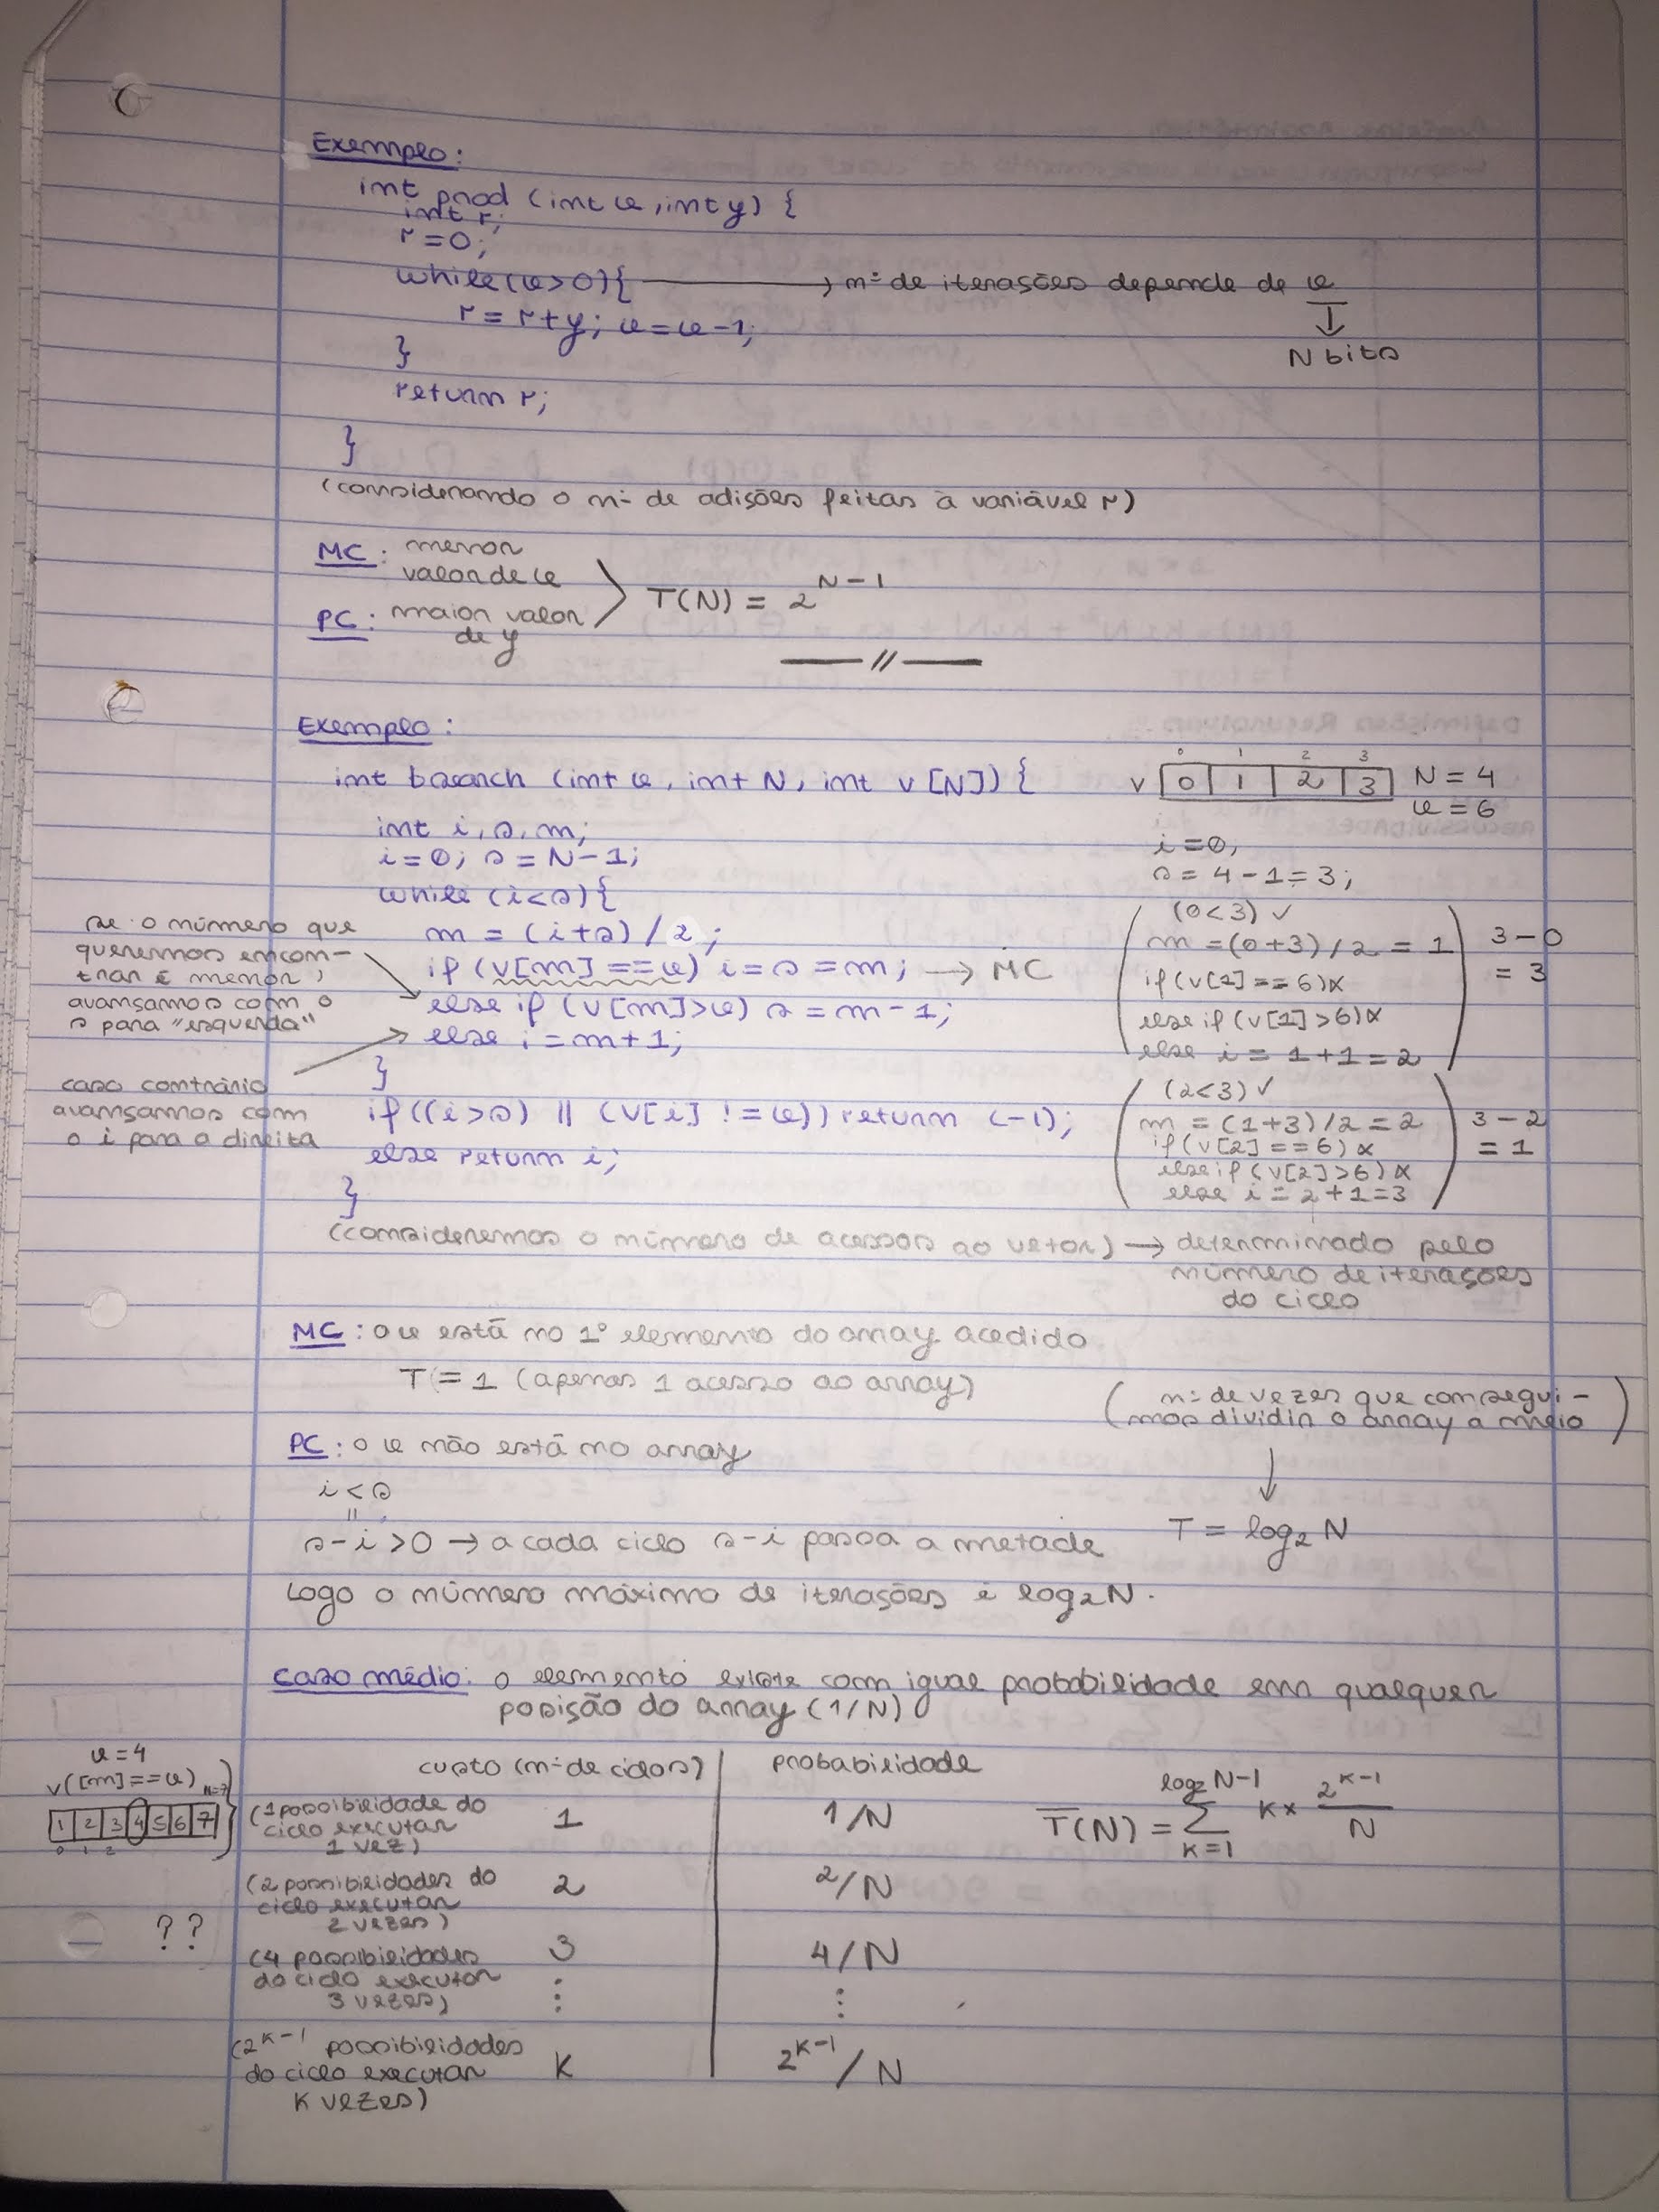 Exemplo:
int prod (int x, int y) {
int r;
r=0;
while (x>0){ → nº de iterações depende de x
↓
N bits
r = r+y; x=x-1;
}
return r;
}
(considerando o nº de adições feitas à variável r)
MC: menor
valor de x
PC: maior valor
de y
T(N) = 2^(N-1)
Exemplo:
int bsearch (int x, int N, int v[N]) {
0 1 2 3
v 0 1 2 3 N=4
x=6
int i, s, m;
i=0; s=N-1;
while (i<s){
m = (i+s)/2;
if (v[m]==x) i=s=m; → MC
else if (v[m]>x) s=m-1;
else i=m+1;
}
if ((i>s) || (v[i] !=x)) return (-1);
else return i;
}
se o número que
queremos encon-
trar é menor,
avansamos com o
s para "esquerda"
caso contrário
avansamos com
o i para a direita
i=0;
s=4-1=3;
(0<3) ✓
m=(0+3)/2=1
if (v[1]==6)x
else if (v[1]>6)x
else i=1+1=2
3-0
=3
(2<3) ✓
m=(1+3)/2=2
if (v[2]==6)x
else if (v[2]>6)x
else i=2+1=3
3-2
=1
(consideremos o número de acessos ao vetor) → determinado pelo
número de iterações
do ciclo
MC: o x está no 1º elemento do array acedido
T=1 (apenas 1 acesso ao array)
(nº de vezes que consegui-
mos dividir o array a meio)
↓
T = log₂ N
PC: o x não está no array
i<s
||
s-i>0 → a cada ciclo s-i passa a metade
Logo o número máximo de iterações é log₂N.
caso médio: o elemento existe com igual probabilidade em qualquer
posição do array (1/N)
x=4
v([m]==x) N=7
1 2 3 4 5 6 7
0 1 2
??
custo (nº de ciclos) probabilidade
(1 possibilidade do
ciclo executar
1 vez) 1 1/N
(2 possibilidades do
ciclo executar
2 vezes) 2 2/N
(4 possibilidades
do ciclo executar
3 vezes) 3 4/N
⋮ ⋮
(2^(K-1) possibilidades
do ciclo executar
K vezes) K 2^(K-1)/N
log₂ N-1
T̅(N) = Σ K× 2^(K-1)/N
K=1